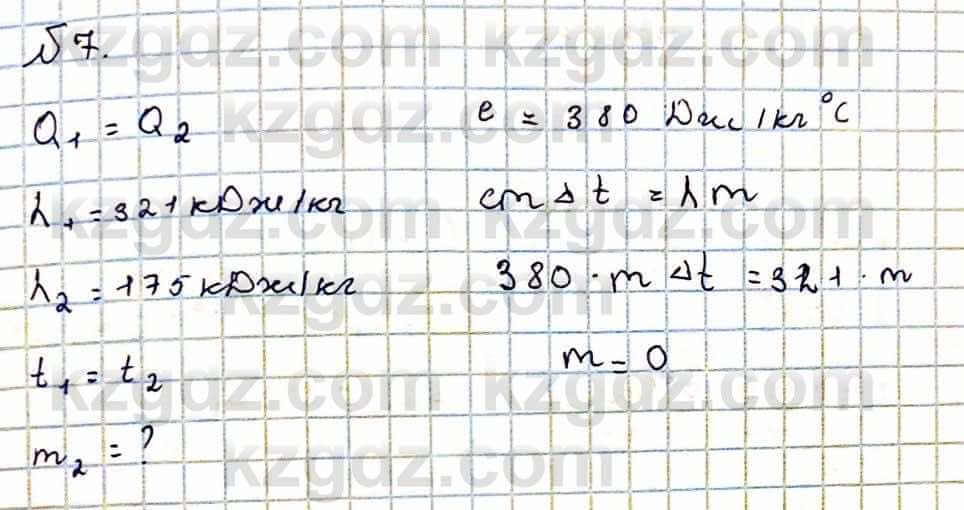 №7.
Q₁ = Q₂
λ₁ = 321 кДж/кг
λ₂ = 175 кДж/кг
t₁ = t₂
m₂ = ?
c = 380 Дж/кг °C
cmΔt = λm
380 · mΔt = 321 · m
m = 0
kzgdz.com kzgdz.com
kzgdz.com kzgdz.com
kzgdz.com kzgdz.com
kzgdz.com kzgdz.com
kzgdz.com kzgdz.com
kzgdz.com